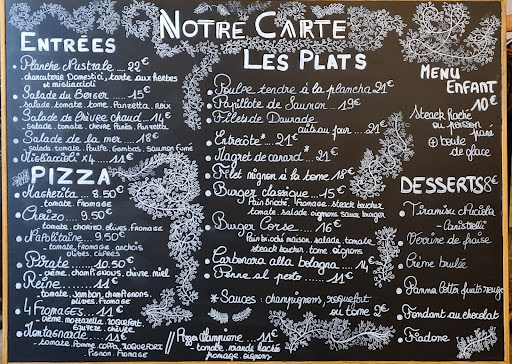 NOTRE CARTE
ENTRÉES
Planche Nustrale .... 22€
charcuterie Domestici, tarte aux herbes
et migliaccioli
Salade du Berger ..... 15€
salade, tomate, tome, Panzetta, noix
Salade de Chèvre chaud .. 14€
salade, tomate, chèvre, Panés, Panzetta
Salade de la mer ..... 18€
salade, tomate, Poulpe, Gambas, Saumon fumé
Migliaccioli x4 .... 11€
PIZZA
Margherita .. 8.50€
tomate, fromage
Chorizo .. 9.50€
tomate, chorizo, olives, fromage
Napolitaine .. 9.50€
tomate, fromage, anchois
olives, câpres
Pirate ...... 10.50€
crème, champignons, chèvre, miel
Reine ....... 11€
tomate, jambon, champignons,
olives, fromage
4 Fromages .... 11€
crème, mozzarella, roquefort,
chèvre
Montagnarde ..... 11€
tomate, Pomme
Oignon, fromage
LES PLATS
Poulpe tendre à la plancha 21€
Papillote de Saumon .. 19€
Filets de Daurade
cuits au four ... 21€
Entrecôte* .. 21€
Magret de canard* .. 21€
Filet mignon à la tome 18€
Burger classique .... 15€
Pain brioché, fromage, steack boucher
tomate, salade, oignons, sauce burger
Burger Corse .... 16€
Pain brioché maison, salade, tomate
steack boucher, tome, oignons
Carbonara alla bologna .. 14€
Penne al pesto ..... 11€
* Sauces : champignons, roquefort
ou tome 2€
Pizza Champione .... 11€
tomate, viande hachée
fromage, oignons
MENU
ENFANT
10€
Steack haché
ou poisson
pané
+ boule
de glace
DESSERTS 8€
Tiramisu Nuciola
Canistrelli
Verrine de fraise
Crème brulée
Panna Cotta fruits rouge
Fondant au chocolat
Fiadone